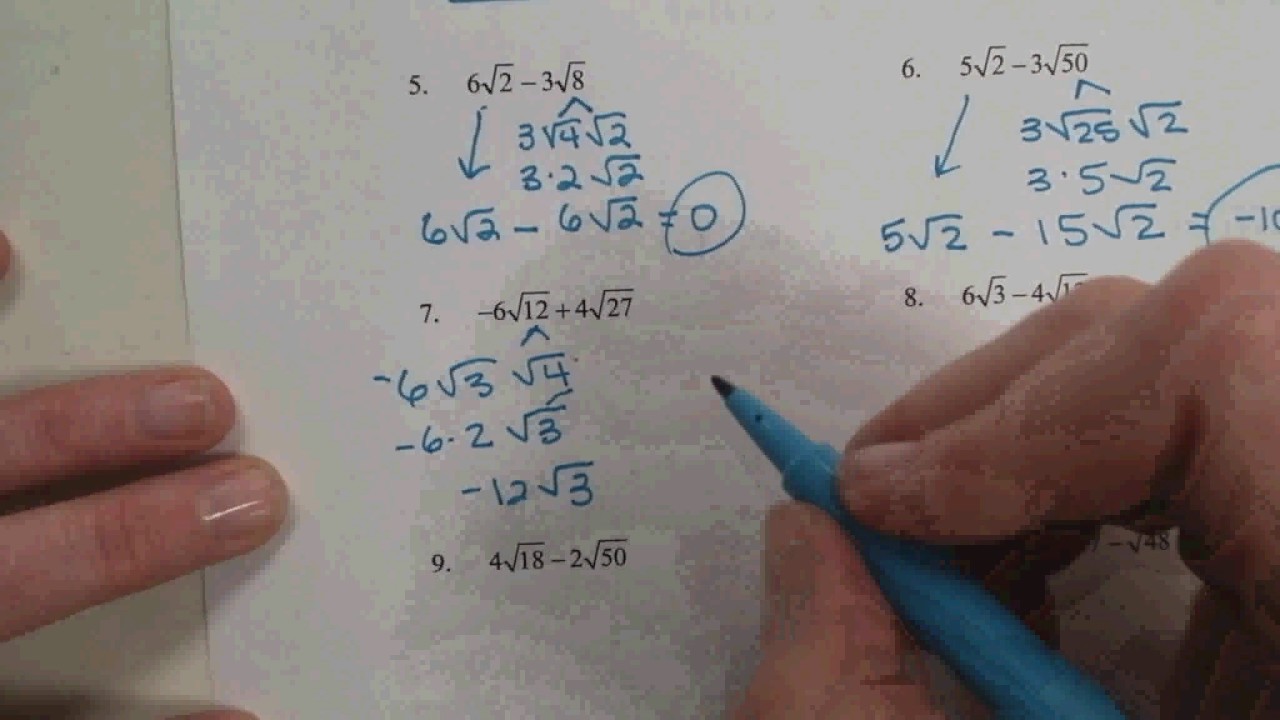 5. 6√2 – 3√8
3√4 √2
3·2 √2
6√2 – 6√2 = 0
6. 5√2 – 3√50
3√25 √2
3·5√2
5√2 – 15√2 =
7. –6√12 + 4√27
-6√3 √4
-6·2 √3
-12√3
8. 6√3 – 4
9. 4√18 – 2√50
– √48